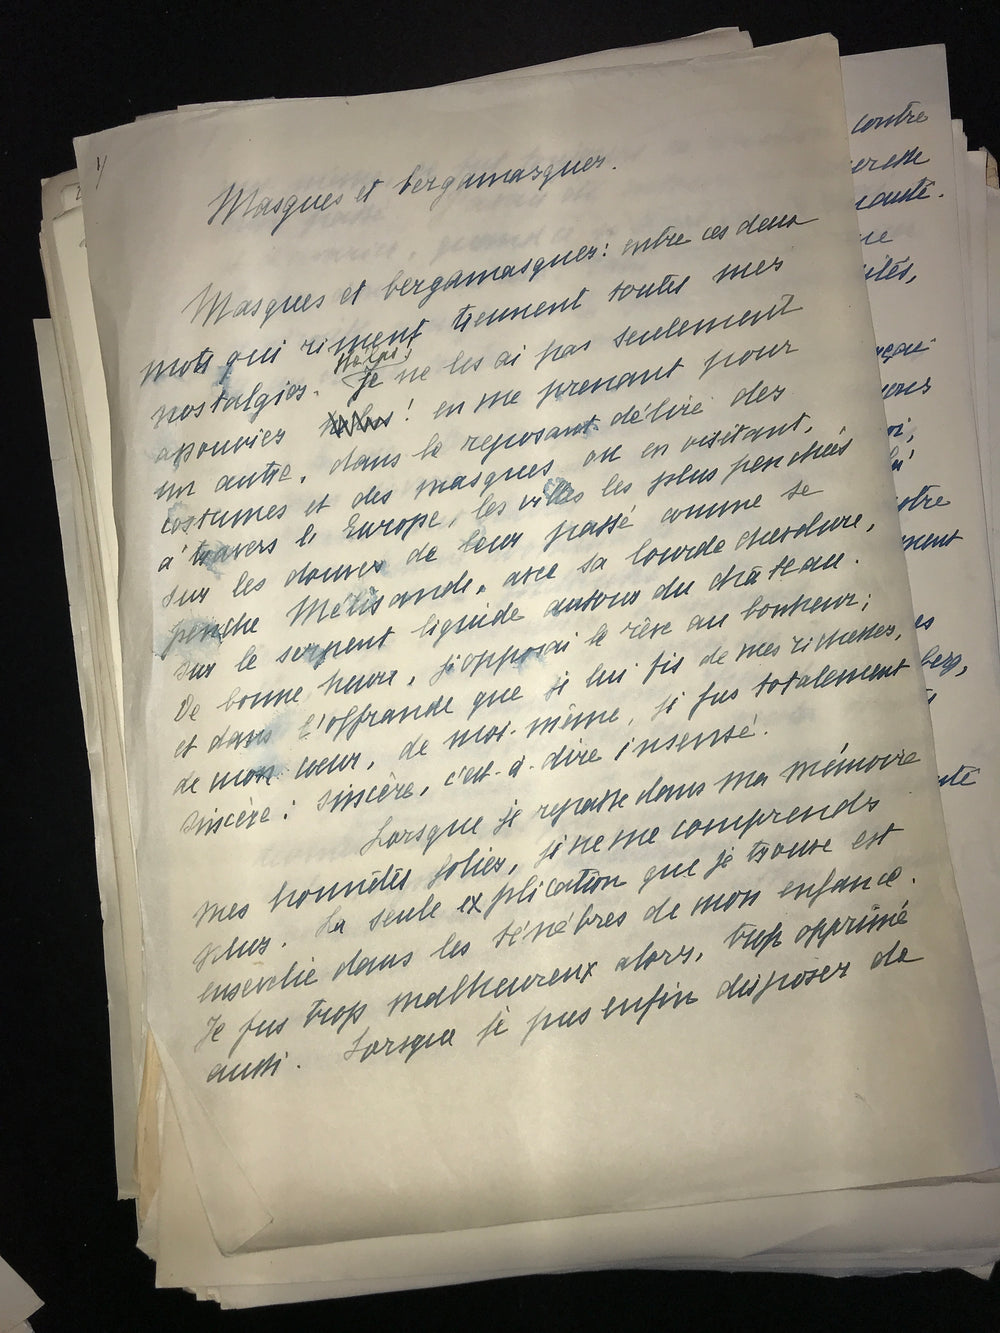 1/
Masques et bergamasques.
Masques et bergamasques : entre ces deux
mots qui riment tiennent toutes mes
nostalgies. Je ne les ai pas seulement
hélas !
apouvries ! en me prenant pour
un autre, dans le reposant délire des
costumes et des masques ou en visitant,
à travers l'Europe, les villes les plus penchées
sur les douves de leur passé comme se
penche Mélisande, avec sa lourde chevelure,
sur le serpent liquide autour du château.
De bonne heure, j'opposai le rêve au bonheur ;
et dans l'offrande que je lui fis de mes richesses,
de mon cœur, de moi-même, je fus totalement
sincère : sincère, c'est-à-dire insensé.
Lorsque je repasse dans ma mémoire
mes honnêtes folies, je ne me comprends
plus. La seule explication que je trouve est
ensevelie dans les ténèbres de mon enfance.
Je fus trop malheureux alors, trop opprimé
aussi. Lorsque je pus enfin disposer de
contre